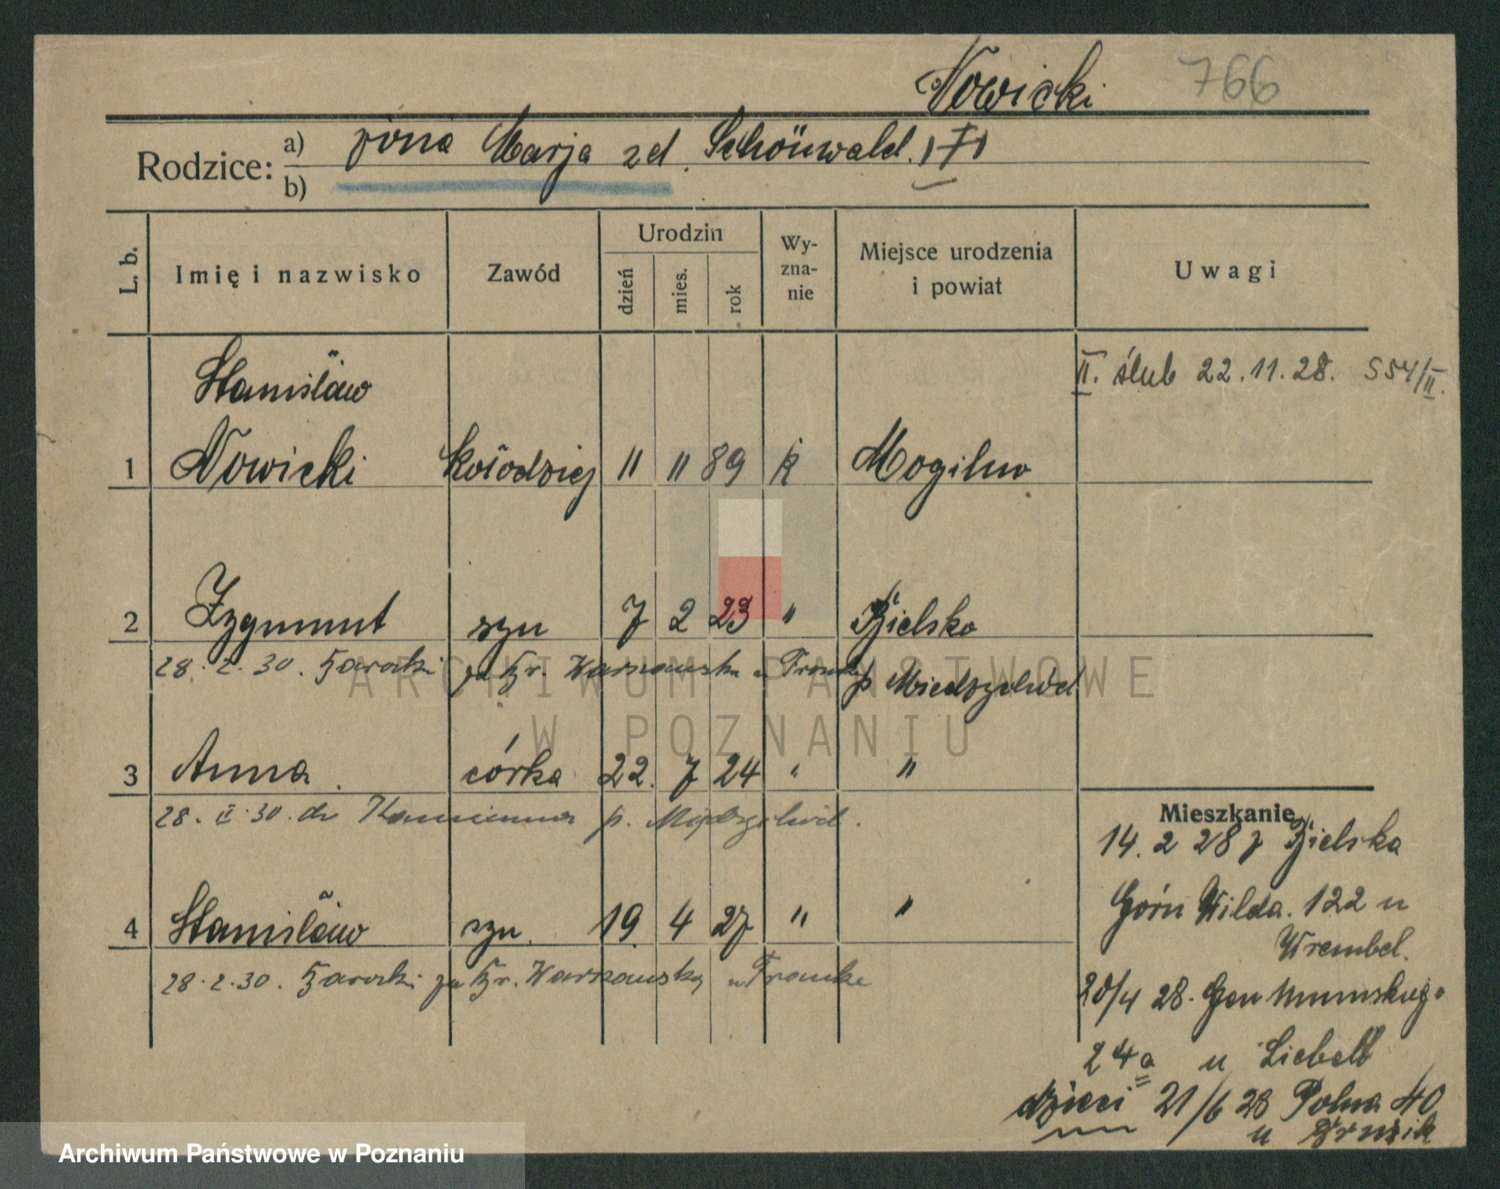 Nowicki 766
Rodzice: a) żona Marja zd. Schönwald. †
b)
L. b. Imię i nazwisko Zawód Urodzin dzień mies. rok Wy-zna-nie Miejsce urodzenia i powiat Uwagi
II. ślub 22.11.28. 554/II.
Stanisław
1 Nowicki kołodziej 11 11 89 k Mogilno
2 Zygmunt syn 7 2 23 " Bielsko
28.2.30. za Warszawską u p. Miedzychód
3 Anna córka 22. 7 24 " "
28.II.30. do Kamionna p. Międzychód.
4 Stanisław syn 19 4 27 " "
28.2.30. za Warszawską u Franke
Mieszkanie
14.2 28 z Bielska
Górn Wilda. 122 u
Wrembel.
20/4 28. Gen
24a u Liebelt
dzieci 21/6 28 Polna 40
u
ARCHIWUM PAŃSTWOWE
W POZNANIU
Archiwum Państwowe w Poznaniu